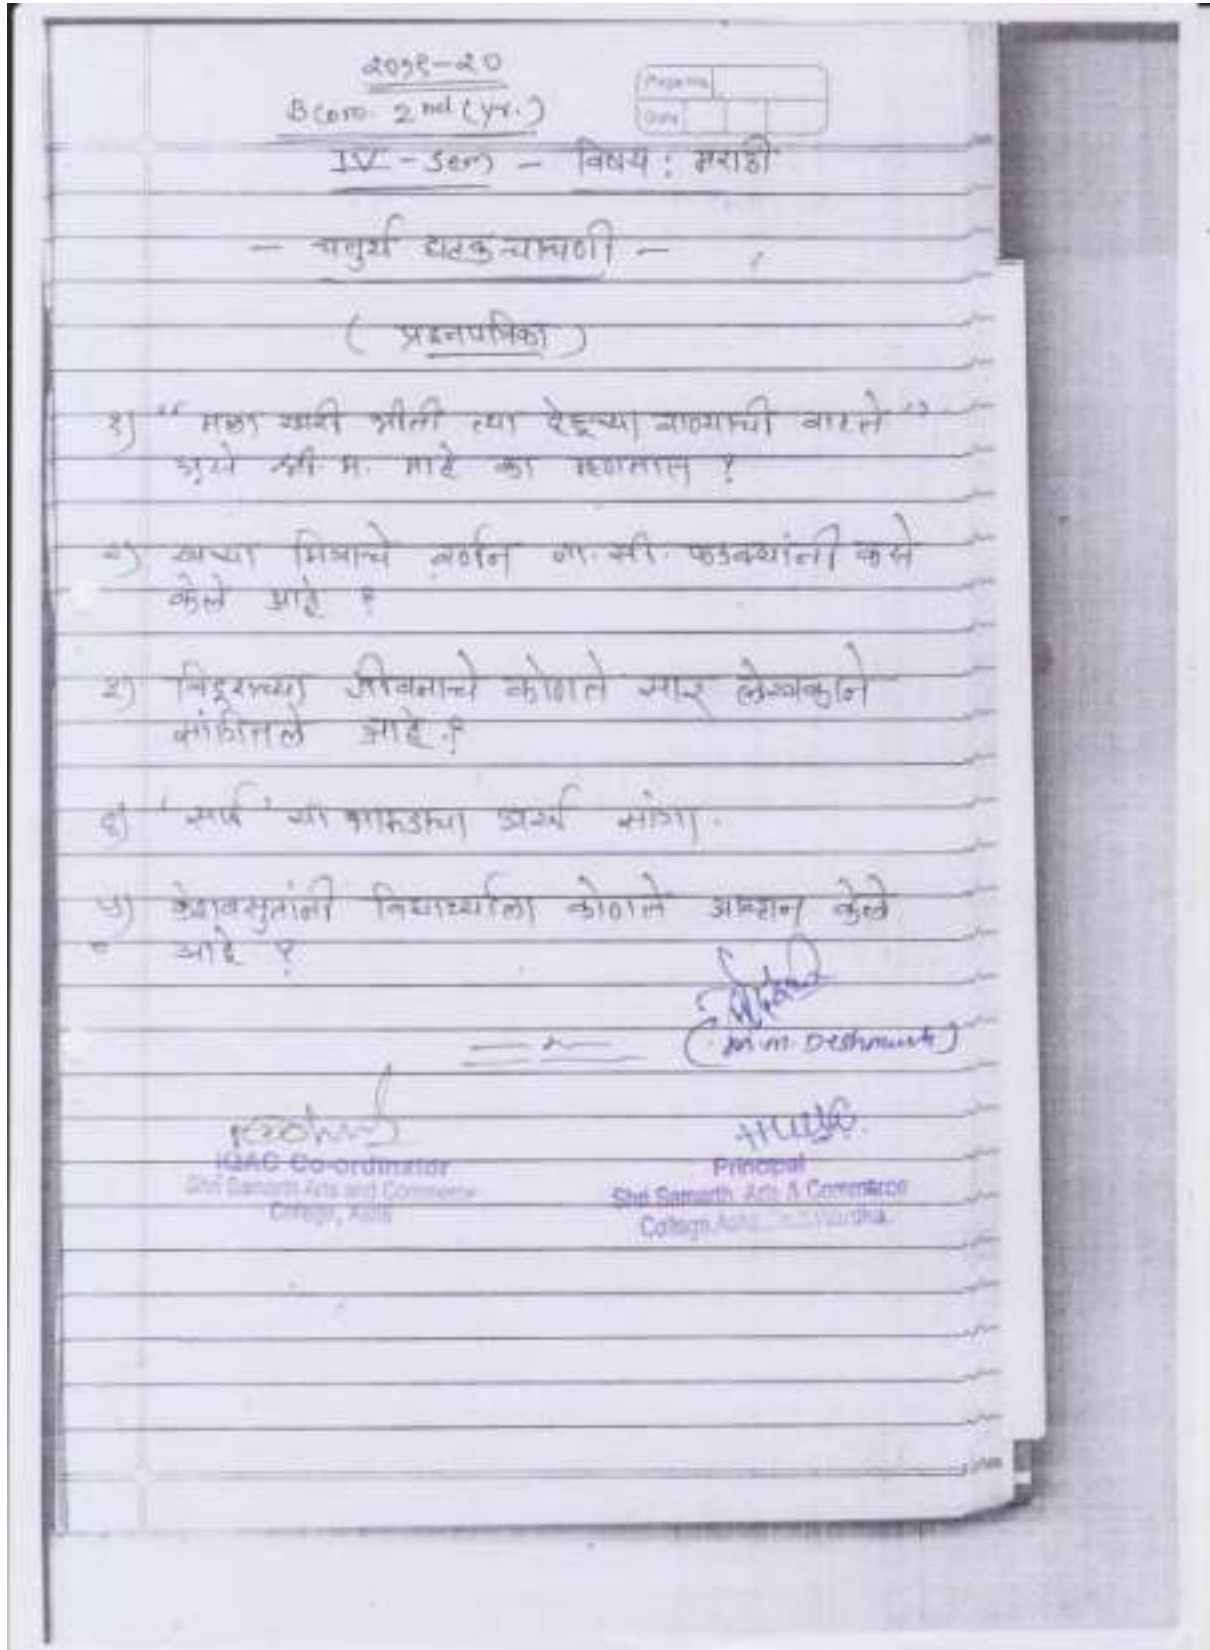 २०१९-२०
Page No.
B com. 2nd (yr.)
Date
IV - Sem - विषय : मराठी
- चतुर्थ घटक चाचणी -
( प्रश्नपत्रिका )
१) “ मला खरी भीती त्या देहूच्या वाण्याची वाटते ”
असे श्री. म. माटे का म्हणतात ?
२) खऱ्या मित्राचे वर्णन ना. सी. फडक्यांनी कसे
केले आहे ?
३) विदूराच्या जीवनाचे कोणते सार लेखकाने
सांगितले आहे ?
४) ' सर्प ' या भारुडाचा अर्थ सांगा.
५) केशवसुतांनी विद्यार्थ्याला कोणते आव्हान केले
आहे ?
(M.M. Deshmukh)
IQAC Co-ordinator
Shri Samarth Arts and Commerce
College, Ashti
Principal
Shri Samarth Arts & Commerce
College Ashti Dist. Wardha